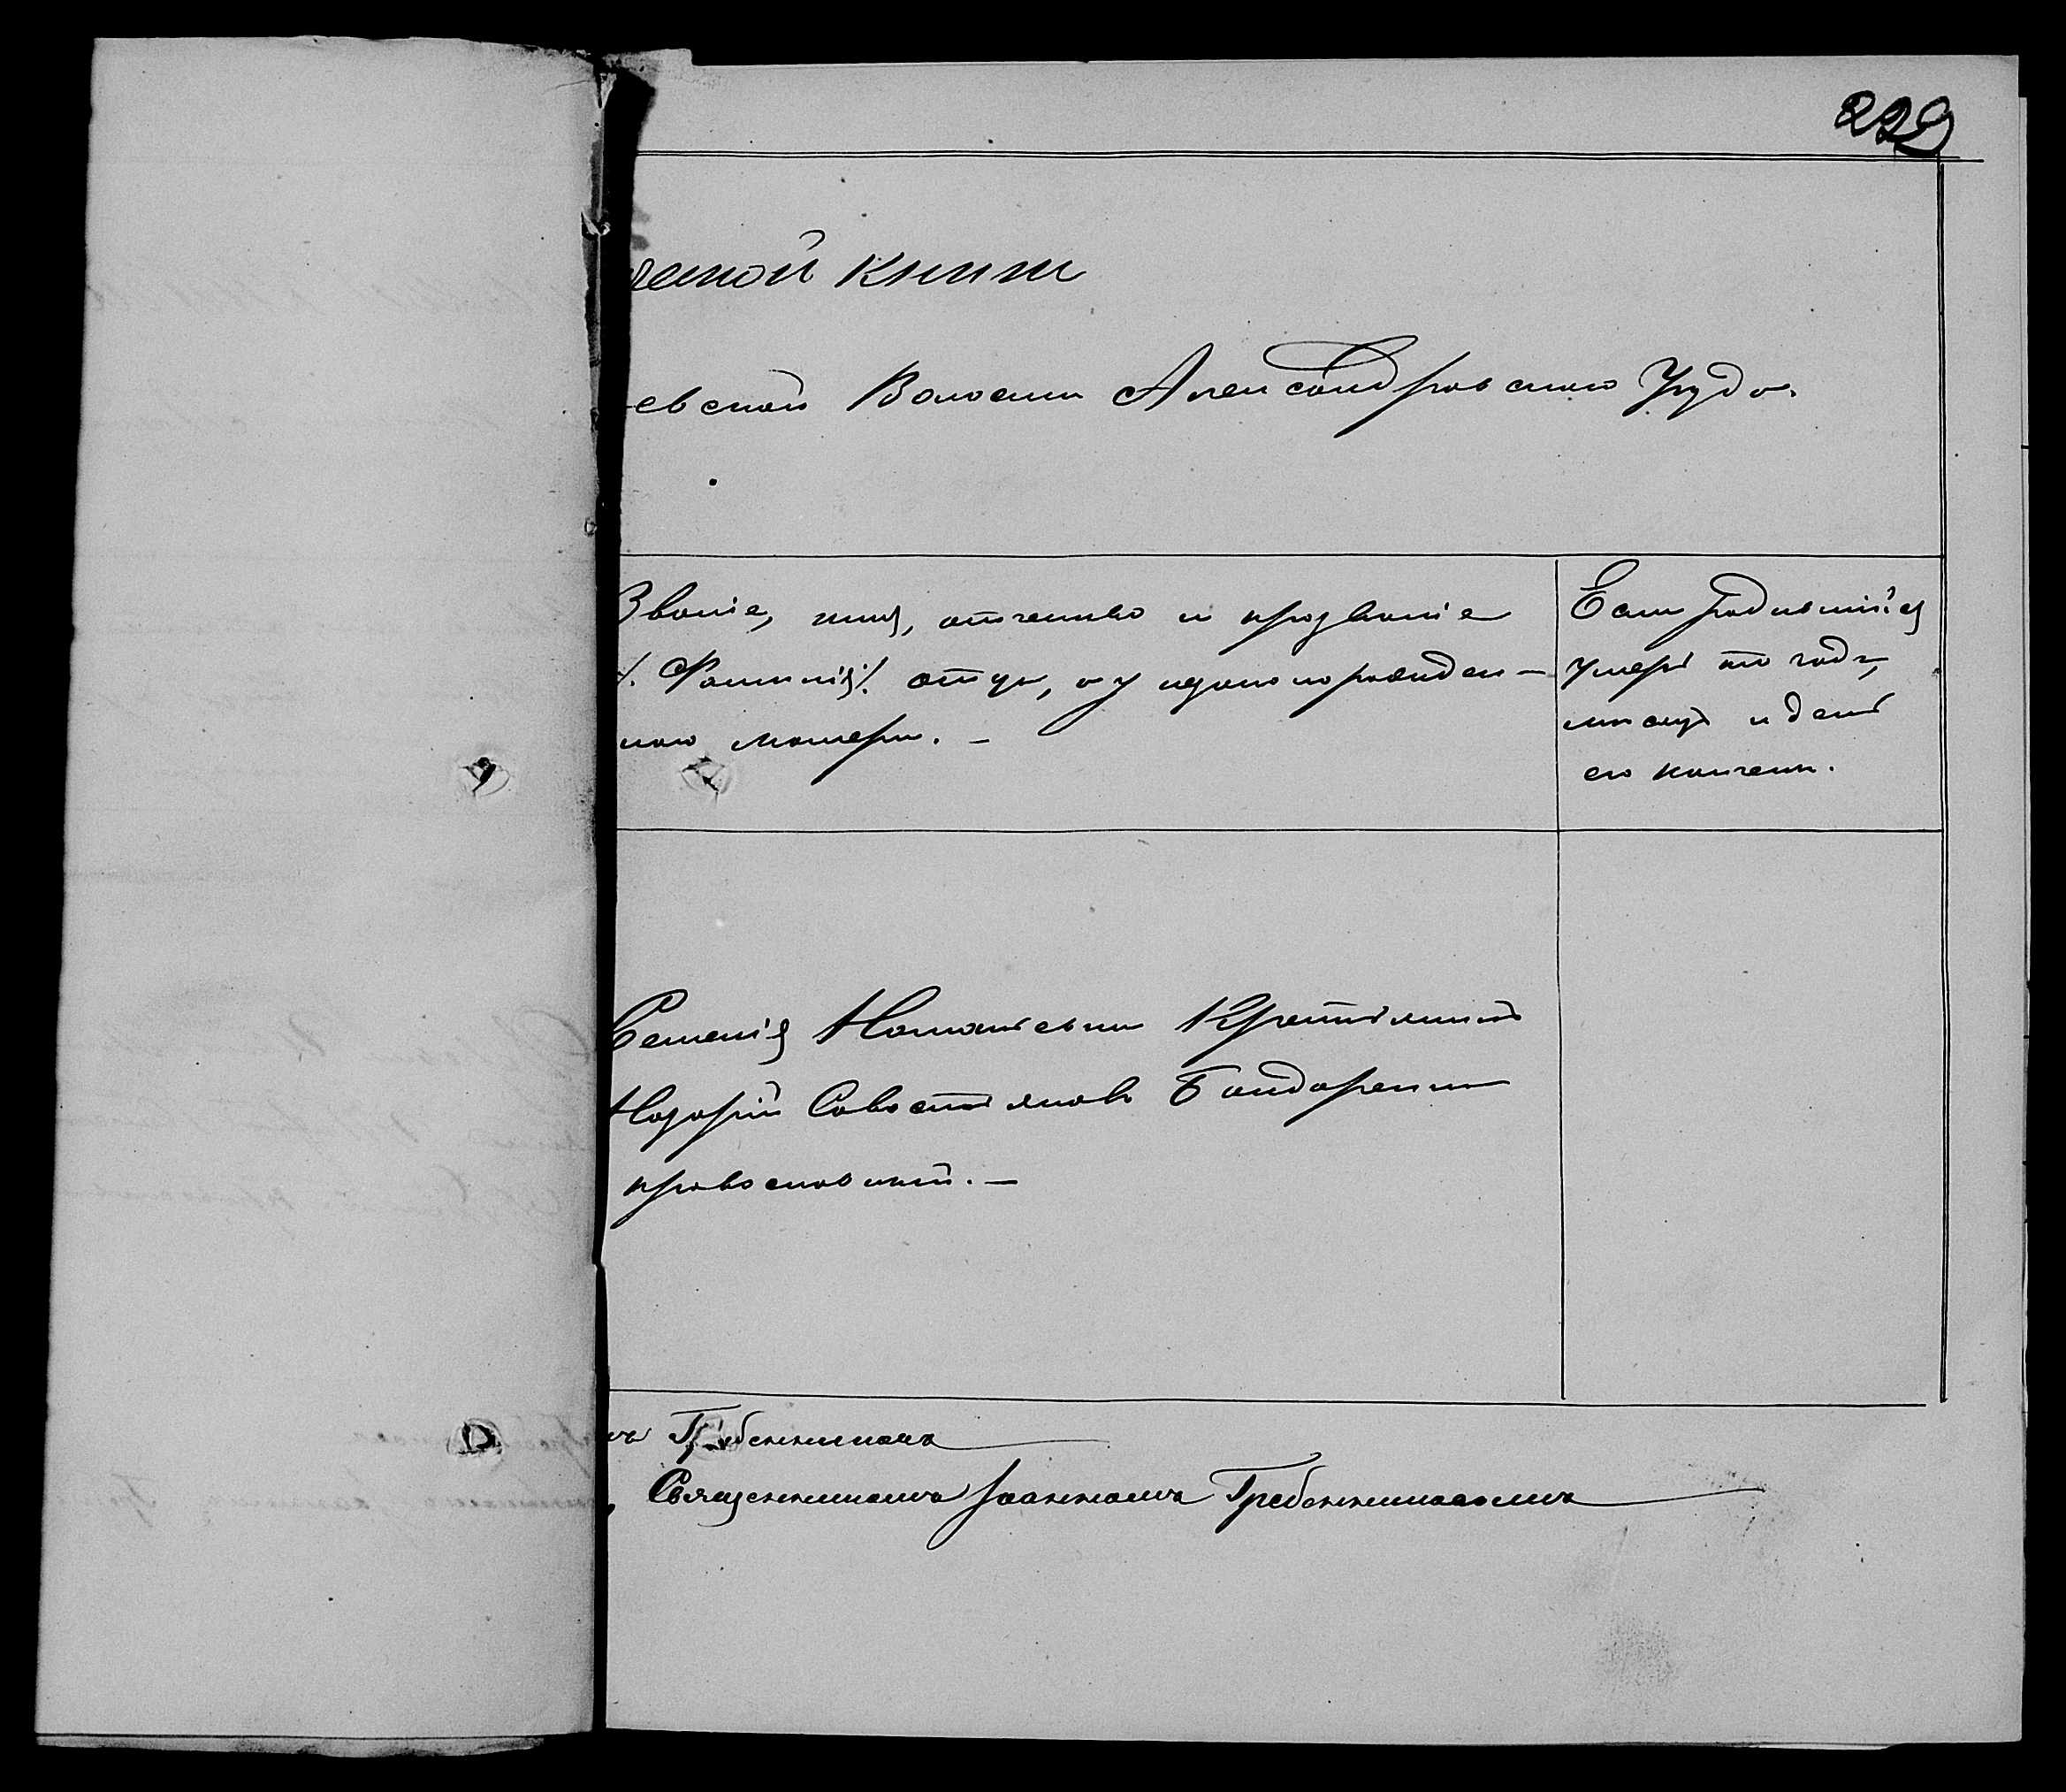 229
ческой книги
евской Волости Александровского Уезда.
Званіе, имя, отчество и прозваніе
/. Фамилія ./ отца, а у незаконорожден-
ного матери. —
Если родившійся
умеръ то годъ,
месяцъ и день
его кончены.
Селенія Крестьянинъ
Назарій Савостьяновъ Бондаренко
православный. —
Гребенниковъ
Священникомъ Іоанномъ Гребенниковымъ